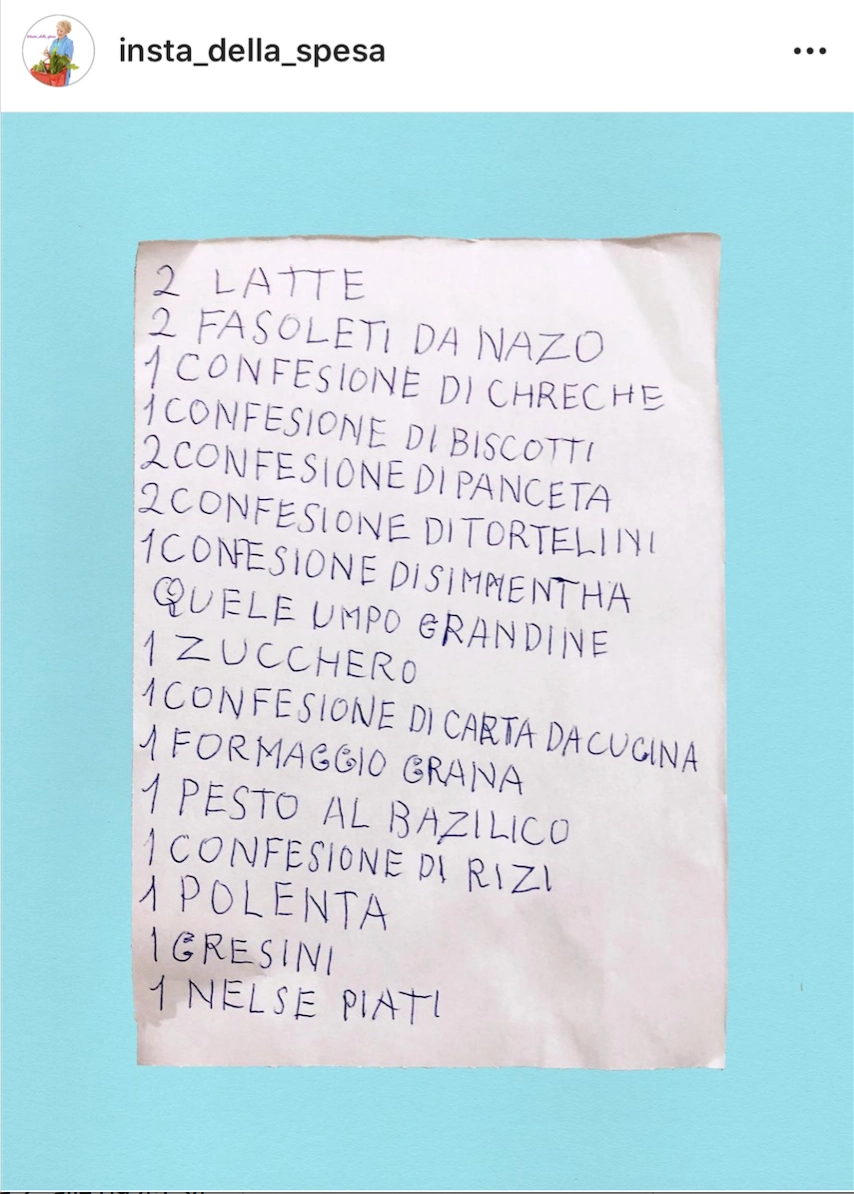 insta_della_spesa
2 LATTE
2 FASOLETI DA NAZO
1 CONFESIONE DI CHRECHE
1 CONFESIONE DI BISCOTTI
2 CONFESIONE DI PANCETA
2 CONFESIONE DI TORTELINI
1 CONFESIONE DI SIMMENTHA
QUELE UMPO GRANDINE
1 ZUCCHERO
1 CONFESIONE DI CARTA DA CUCINA
1 FORMAGGIO GRANA
1 PESTO AL BAZILICO
1 CONFESIONE DI RIZI
1 POLENTA
1 GRESINI
1 NELSE PIATI